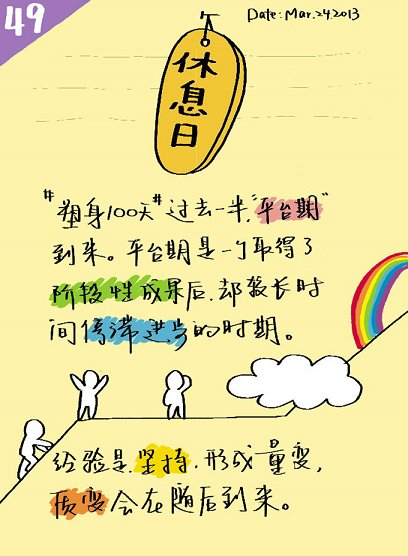 49
Date: Mar.24.2013
休息日
#塑身100天#过去一半,"平台期"
到来。平台期是一个取得了
阶段性成果后,却较长时
间停滞进步的时期。
经验是,坚持,形成量变,
质变会在随后到来。